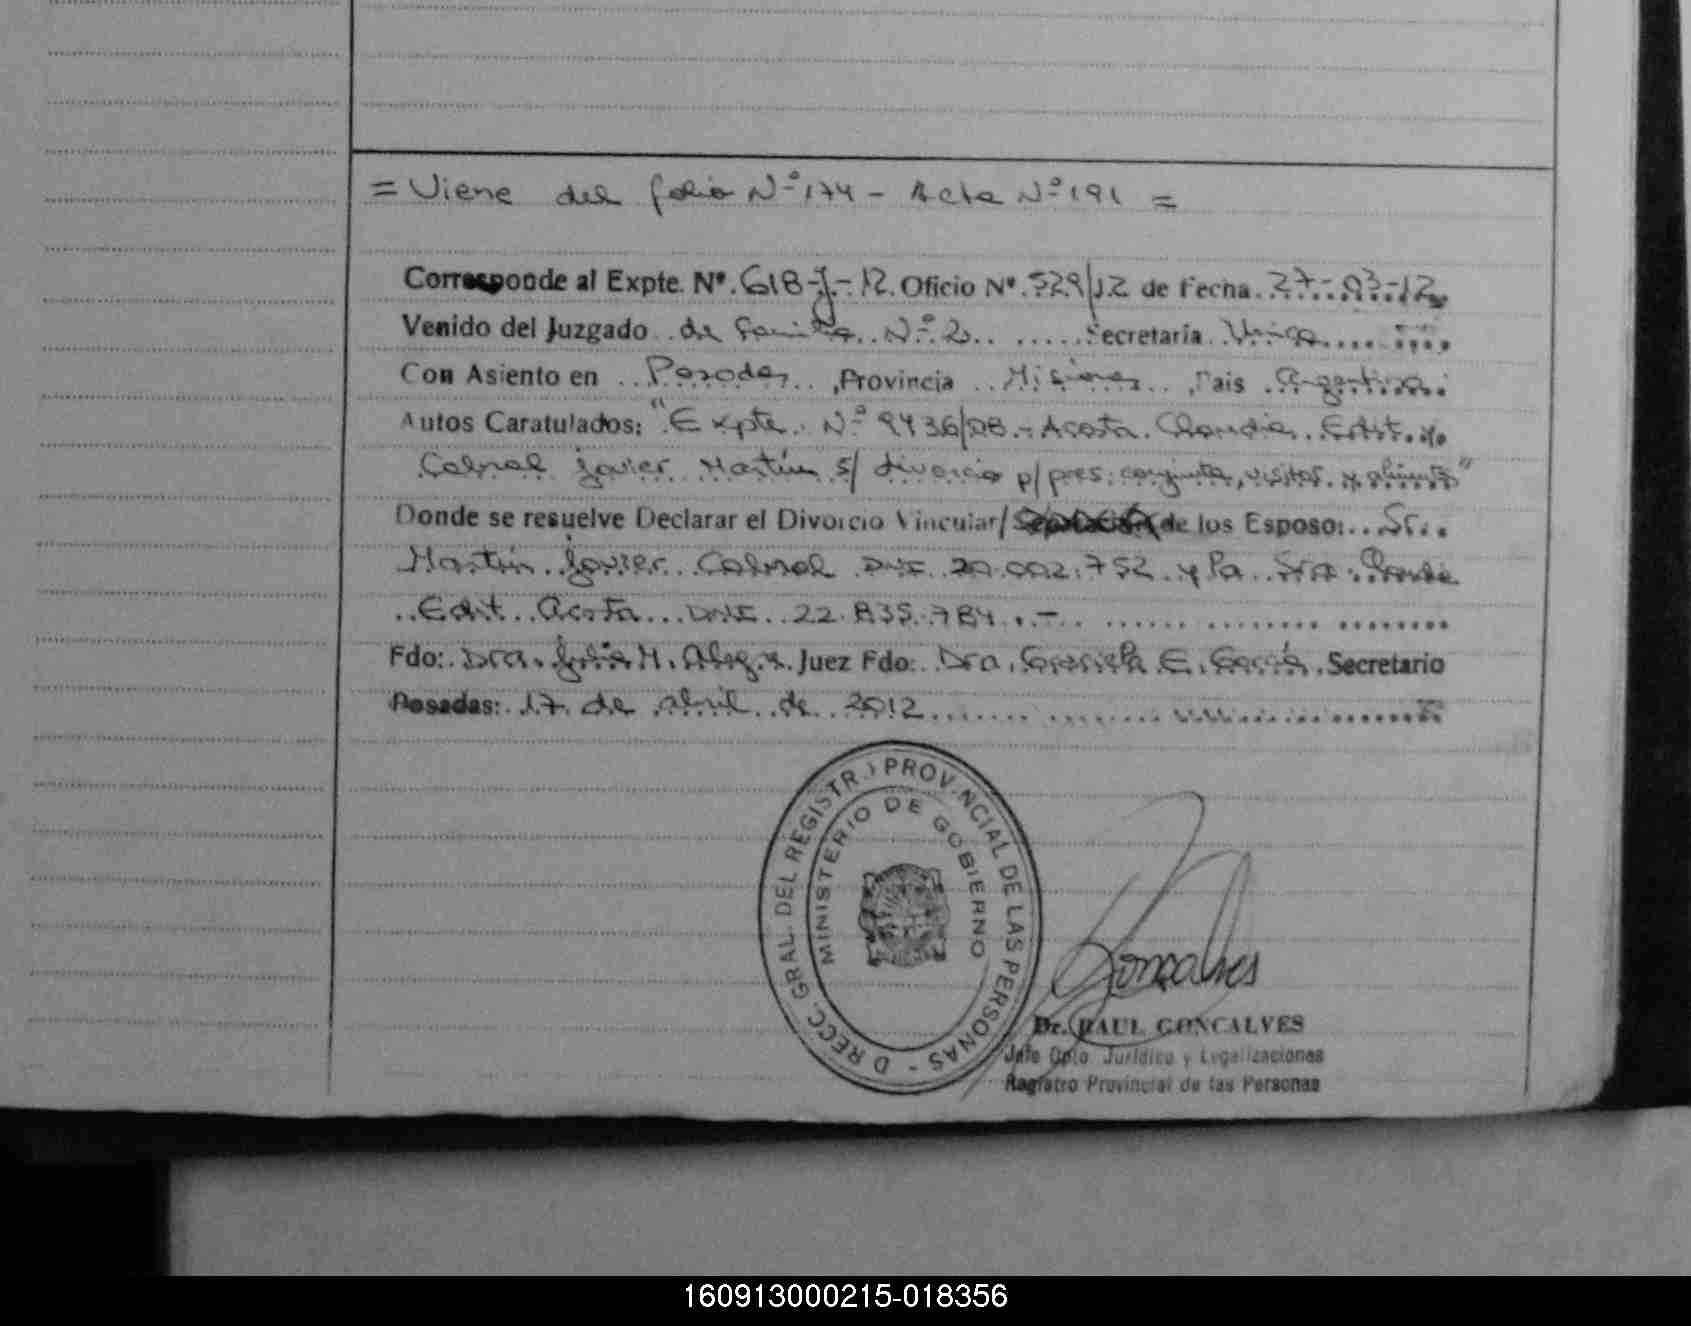 = Viene del folio Nº 174 - Acta Nº 191 =
Corresponde al Expte. Nº. 618-J-12. Oficio Nº. 529/12 de Fecha. 27-03-12
Venido del Juzgado de familia Nº 2 Secretaría Unica
Con Asiento en Posadas, Provincia Misiones, País Argentina
Autos Caratulados: "Expte. Nº 9436/08.- Acosta Claudia Edit. y/o
Cabral Javier Martín s/ divorcio p/ pres. conjunta, visitas y alimentos"
Donde se resuelve Declarar el Divorcio Vincular/ de los Esposo: Sr.
Martín Javier Cabral DNI 20.002.752 y la Sra. Claudia
Edit Acosta DNI 22.835.784.-
Fdo: Dra. Julia M. Alegre Juez Fdo: Dra. Graciela E. García. Secretario
Posadas: 17 de abril de 2012
DIRECC. GRAL. DEL REGISTRO PROVINCIAL DE LAS PERSONAS -
MINISTERIO DE GOBIERNO
Goncalves
Dr. RAUL GONCALVES
Jefe Dpto Jurídico y Legalizaciones
Registro Provincial de las Personas
160913000215-018356